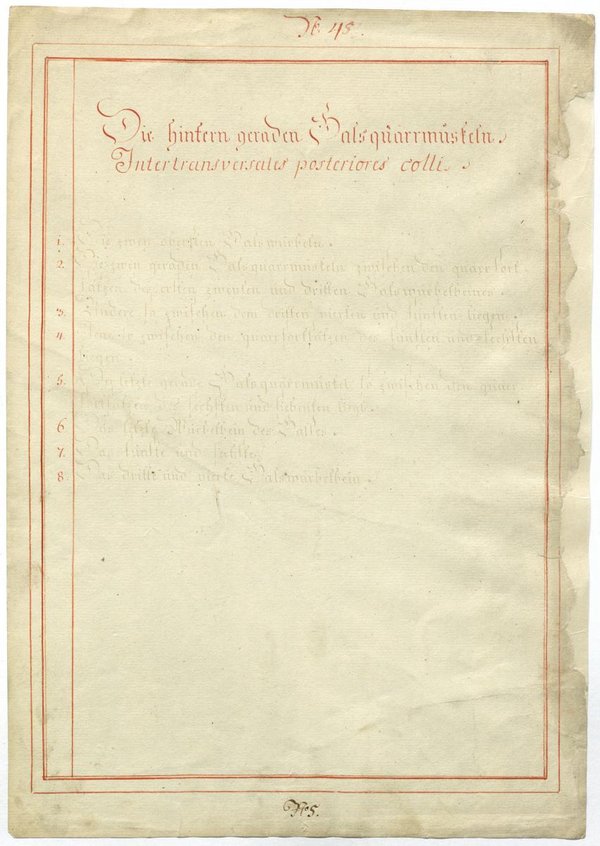 N. 45.
Die hintern geraden Halsquarrmüskeln.
Intertransversales posteriores colli.
1. Die zwey obersten Halswürbeln.
2. Die zwey geraden Halsquarrmüskeln zwischen den quarrfort
sätzen des ersten zweyten und dritten Halswürbelbeines.
3. Andere so zwischen dem dritten vierten und fünften liegen.
4. Jene so zwischen den quarrfortsätzen des fünften und sechsten
liegen.
5. Die letzte gerade Halsquarrmüskel so zwischen den quarr
fortsätzen des sechsten und siebenten
6. Das letzte Würbelbein des Halses.
7. Das fünfte und sechste.
8. Das dritte und vierte Halswürbelbein.
No 5.